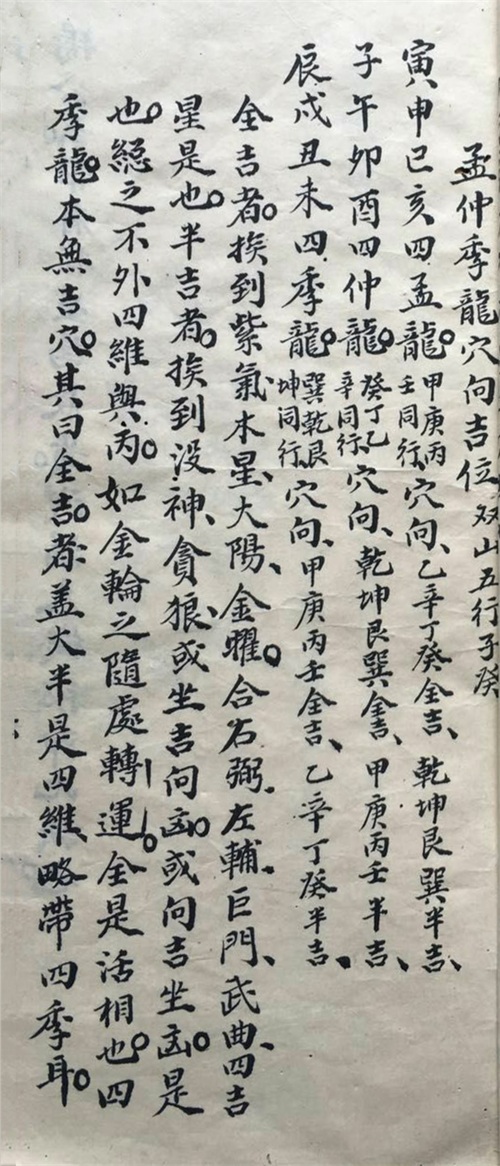 孟仲季龍穴向吉位双山五行子癸
寅申巳亥四孟龍。甲庚丙壬同行、穴向、乙辛丁癸全吉、乾坤艮巽半吉、
子午卯酉四仲龍。癸丁乙辛同行、穴向、乾坤艮巽全吉、甲庚丙壬半吉、
辰戌丑未四季龍。巽乾艮坤同行、穴向、甲庚丙壬全吉、乙辛丁癸半吉、
全吉者。挨到紫氣木星、大陽、金曜。合右弼、左輔、巨門、武曲、四吉
星是也。半吉者。挨到没神、貪狼、或坐吉向凶。或向吉坐凶。是
也。總之不外四維與丙。如金輪之隨處轉運。全是活相也。四
季龍。本無吉穴。其曰全吉。者。盖大半是四維、略帶四季耳。